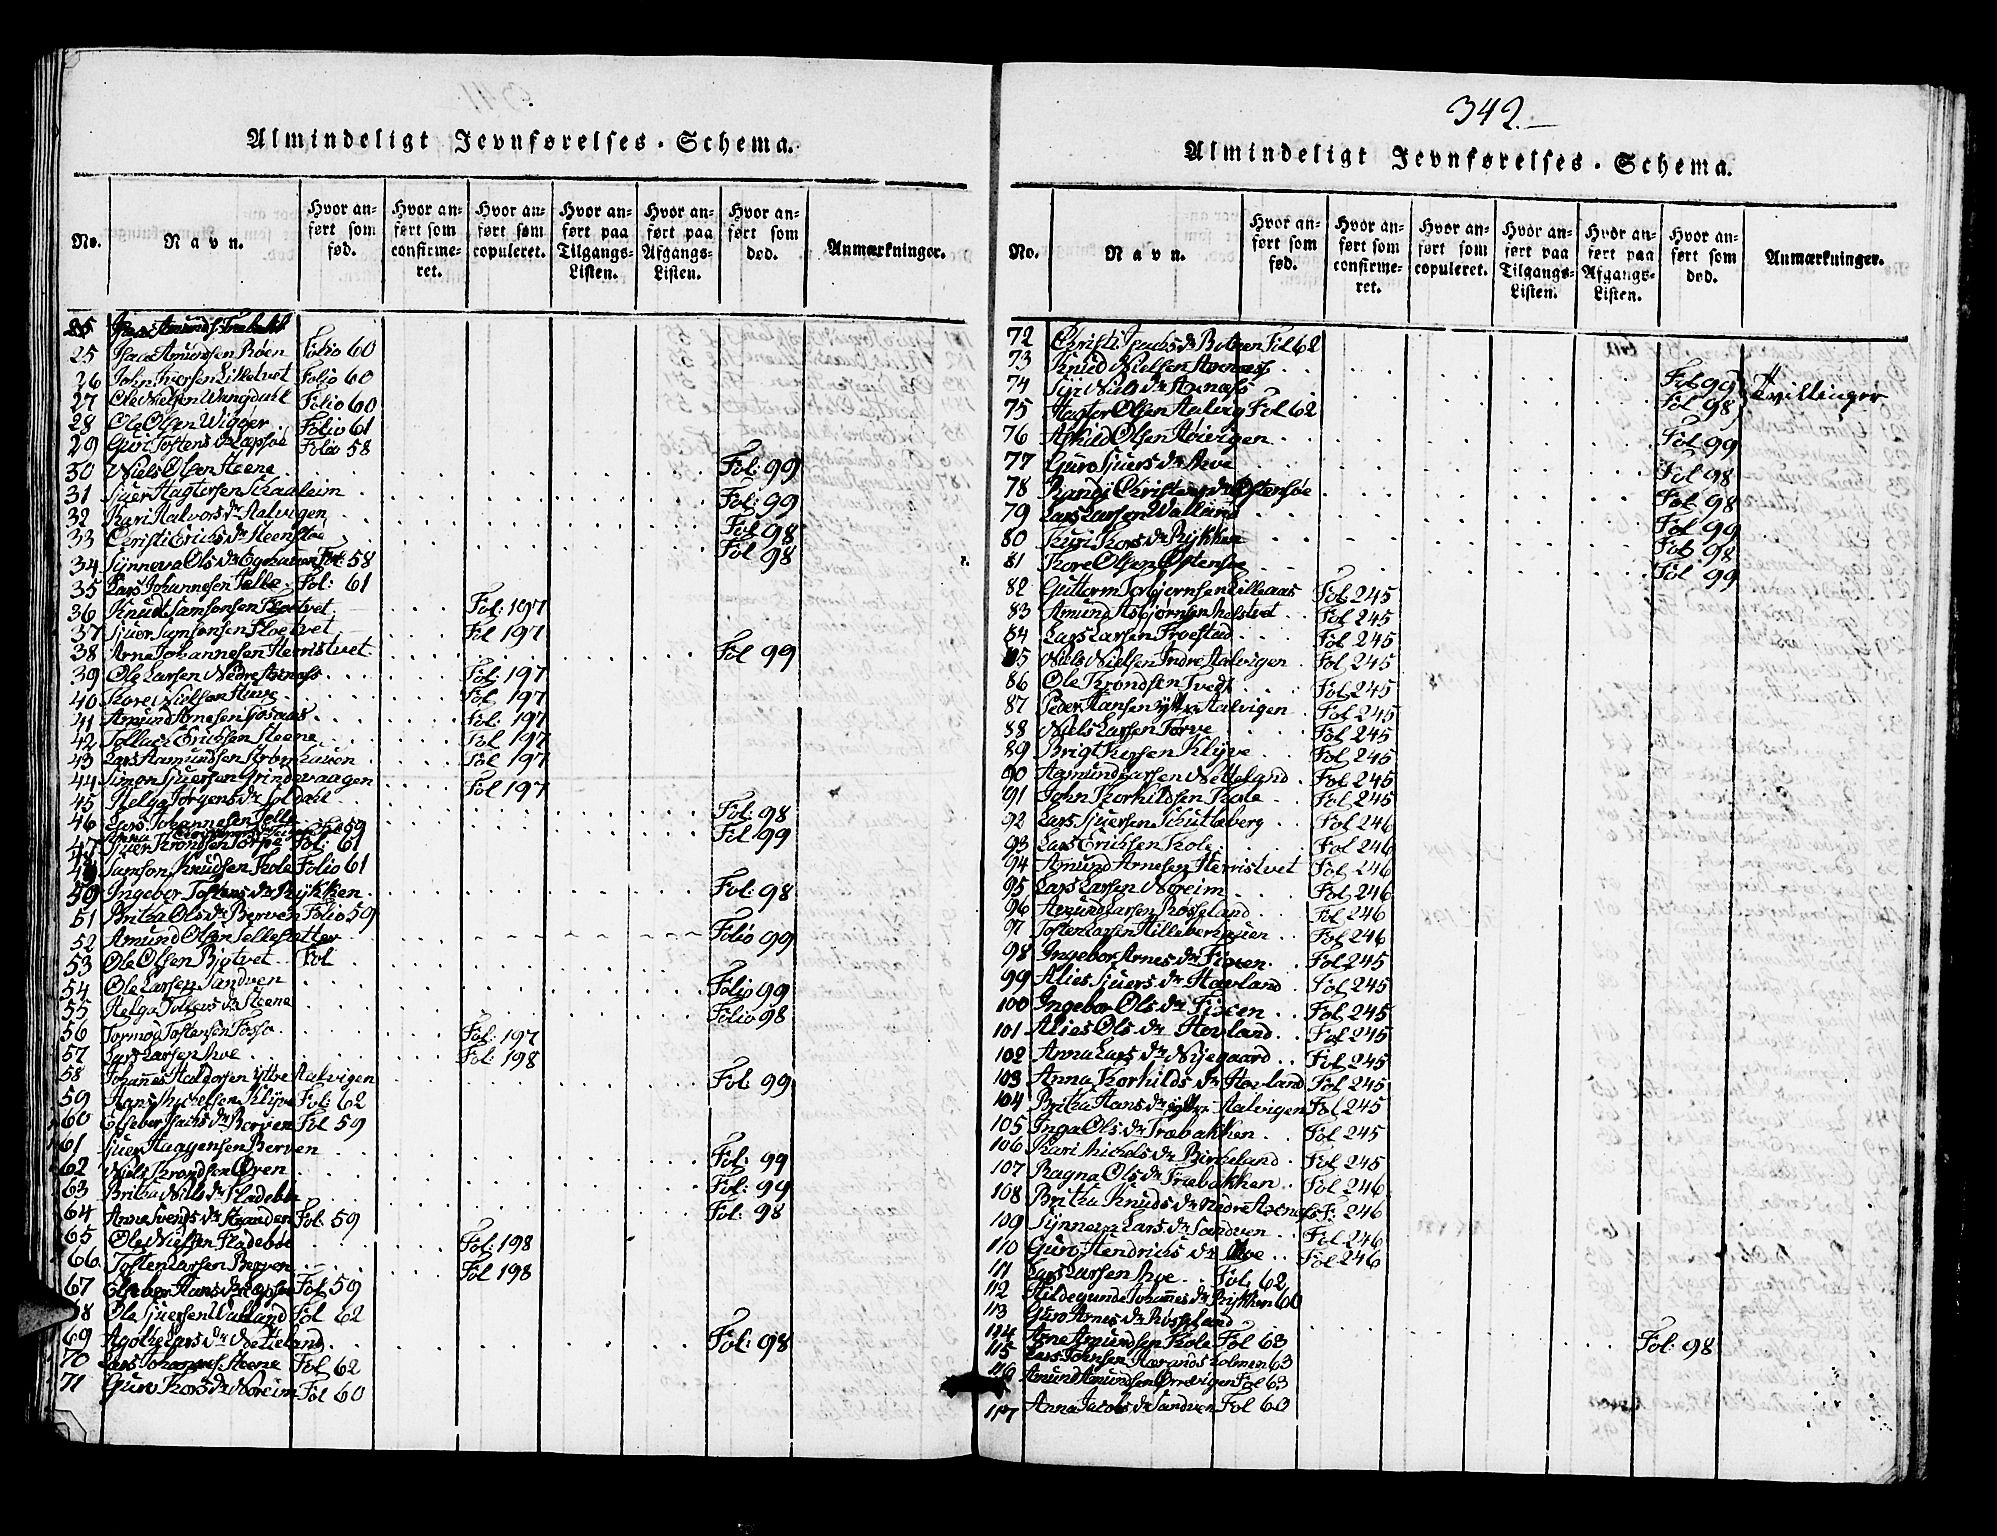 Almindeligt Jevnførelses-Schema.
No. Navn. Hvor anført som fød. Hvor anført som confirmeret. Hvor anført som copuleret. Hvor anført paa Tilgangs-Listen. Hvor anført paa Afgangs-Listen. Hvor anført som død. Anmærkninger.
25 Isac Amundsen Røen Folio 60
26 John Iversen Lilletvet Folio 60
27 Ole Nielsen Wangdahl Folio 60
28 Ole Olsen Wigøer Folio 61
29 Guri Tostens dr Folio 58
30 Niels Olsen Steene Fol: 99
31 Sjur Hagtorsen Skaaleim Fol: 99
32 Kari Halvors dr Aalvigen Fol 98
33 Christi Erichs dr Steenstøe Fol 98
34 Synneva Ols dr Fol: 58
35 Lars Johannesen Selde Fol: 61
36 Knudt Samsonsen Floetvet Fol: 197
37 Sjur Samsonsen Floetvet Fol 197
38 Arne Johannesen Herristvet Fol 99
39 Ole Larsen Nedre Axnæss Fol: 197
40 Nielsen Fol 197
41 Amund Arnesen Fol: 197
42 Tollack Erichsen Steene Fol 197
43 Lars Aamundsen Fol 197
44 Simon Sjursen Grindevaagen Fol 197
45 Helga Jørgens dr Soldahl Fol: 98
46 Lars Johannesen Selde Fol 99
47 Fol 59
48 Sjur Trondsen Torpe Fol: 61
49 Samson Knudsen Kole Folio 61
50 Ingebor Tostens dr Rykken Fol: 98
51 Britha Ols dr Berven Folio 59
52 Amund Olsen Folio 99
53 Ole Olsen Bjotvet Fol
54 Ole Larsen Sandven Folio 99
55 Helga Tollevs dr Steene Folio 98
56 Tormod Tostensen Fosse Fol: 197
57 Lars Larsen Fol: 198
58 Johannes Haldorsen yttre Aalvigen Fol: 99
59 Hans Michelsen Klyve Fol: 62
60 Elseber Isachs dr Berven Fol 59
61 Sjur Haagensen Berven Fol: 99
62 Niels Trondsen Øren Fol: 99
63 Britha Niels dr Fladebøe Fol: 98
64 Anna Svends dr Stranden Fol: 59
65 Ole Nielsen Fladebøe Fol: 198
66 Tosten Larsen Berven Fol 198
67 Elseber Hans dr Fol 59
68 Ole Sjursen Walland Fol 62
69 Agathe Lars dr Netteland Fol: 98
70 Lars Johannes. Steene Fol 62
71 Guro dr Noreim Fol 60
342.
Almindeligt Jevnførelses-Schema.
No. Navn. Hvor anført som fød. Hvor anført som confirmeret. Hvor anført som copuleret. Hvor anført paa Tilgangs-Listen. Hvor anført paa Afgangs-Listen. Hvor anført som død. Anmærkninger.
72 Christi Isachs dr Botnen Fol 62
73 Knud Nielsen Axnæss Fol 99
74 Syri Niels dr Axnæss Fol 98 Tvillinger
75 Hagtor Olsen Aalvig Fol 62
76 Olsen Fol 99
77 Guro Sjurs dr Fol 98
78 Randi Christens dr Østensøe Fol 98
79 Lars Larsen Walland Fol 99
80 Kari dr Rykken Fol 98
81 Tore Olsen Østensøe Fol 99
82 Guttorm Torbjørnsen Lilleaas Fol 245
83 Amund Asbjørnsen Fol 245
84 Lars Larsen Froestad Fol 245
85 Niels Nielsen Indre Aalvigen Fol 245
86 Ole Trondsen Tvedt Fol 245
87 Peder Hansen yttre Aalvigen Fol 245
88 Niels Larsen Torve Fol 245
89 Brigt Klyve Fol 245
90 Aamund Larsen Netteland Fol 245
91 John Thorkildsen Kole Fol 245
92 Lars Sjursen Skutleberg Fol 246
93 Lars Erichsen Kole Fol 246
94 Amund Arnesen Herristvet Fol 246
95 Lars Larsen Noreim Fol 246
96 Amund Larsen Røsseland Fol 246
97 Tosten Larsen Fol 246
98 Ingebor Arnes dr Fixen Fol 245
99 Alies Sjurs dr Hovland Fol 245
100 Ingebor Ols dr Fixen Fol 245
101 Alies Ols dr Hovland Fol 245
102 Anna Lars dr Nijegaard Fol 245
103 Anna Thorkilds dr Hovland Fol 245
104 Britha Hans dr yttre Aalvigen Fol 245
105 Inga Ols dr Træbakken Fol 245
106 Kari Michels dr Birkeland Fol 245
107 Ragna Ols dr Træbakken Fol 246
108 Britha Knuds dr nedre Axnæss F: 246
109 Synneva Lars dr Sandven Fol 246
110 Guro Hendrichs dr Fol 246
111 Lars Larsen Fol: 62
112 Hildegunde Johannes dr Rykken 60
113 Guro Arnes dr Røsseland Fol: 98
114 Arne Amundsen Kole Fol 63
115 Lars Johnsen 63
116 Amund Amundsen Fol 63
117 Anna Jacobs dr Sandven Fol 60